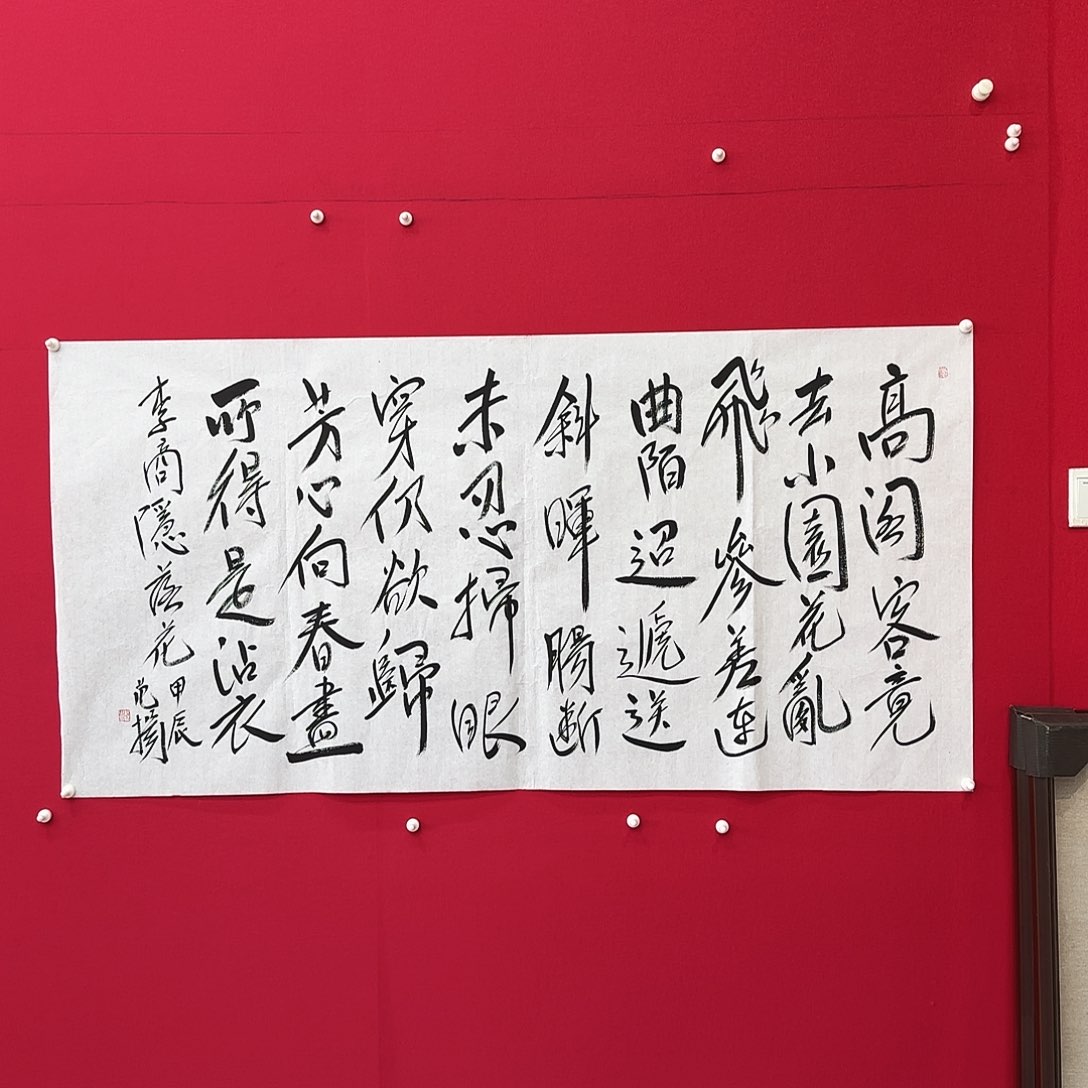 高阁客竟
去小園花亂
飛參差連
曲陌迢遞送
斜暉腸斷
未忍掃眼
穿仍欲歸
芳心向春盡
所得是沾衣
李商隱落花
甲辰